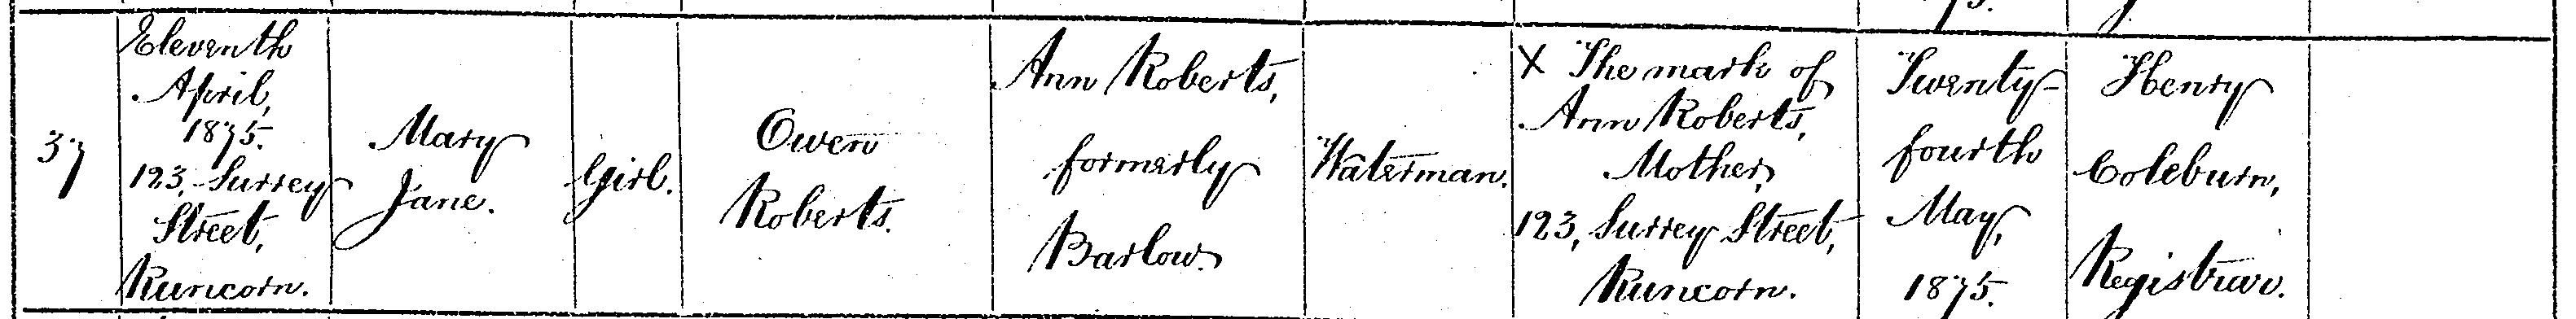 37
Eleventh
April,
1875.
123, Surrey
Street,
Runcorn.
Mary
Jane.
Girl.
Owen
Roberts.
Ann Roberts,
formerly
Barlow.
Waterman.
X The mark of
Ann Roberts,
Mother,
123, Surrey Street,
Runcorn.
Twenty-
fourth
May,
1875.
Henry
Coleburn,
Registrar.